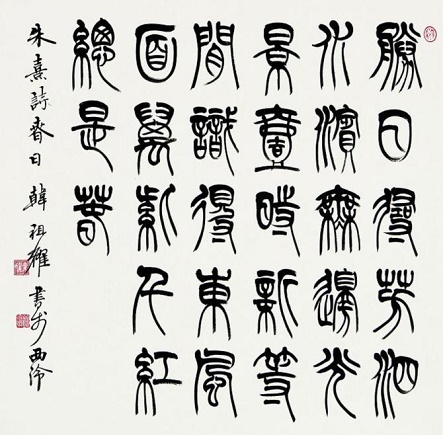 勝日尋芳泗
水濱無邊光
景壹時新等
閒識得東風
面萬紫千紅
總是春
朱熹詩春日 韓祖耀 書於西泠